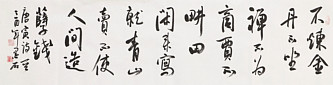 不煉金
丹不坐
禪不為
商賈不
畊田
閒來寫
就青山
賣不使
人間造
孽錢
唐寅詩一首